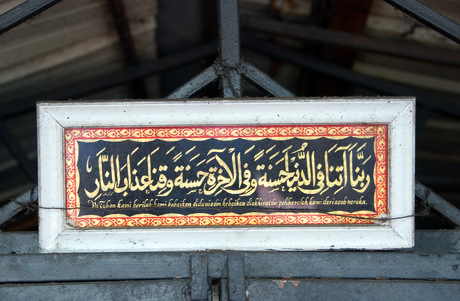 ربنا آتنا في الدنيا حسنة وفي الآخرة حسنة وقنا عذاب النار
Ya Tuhan kami berilah kami kebaikan didunia dan kebaikan diakhirat dan peliharalah kami dari azab neraka.